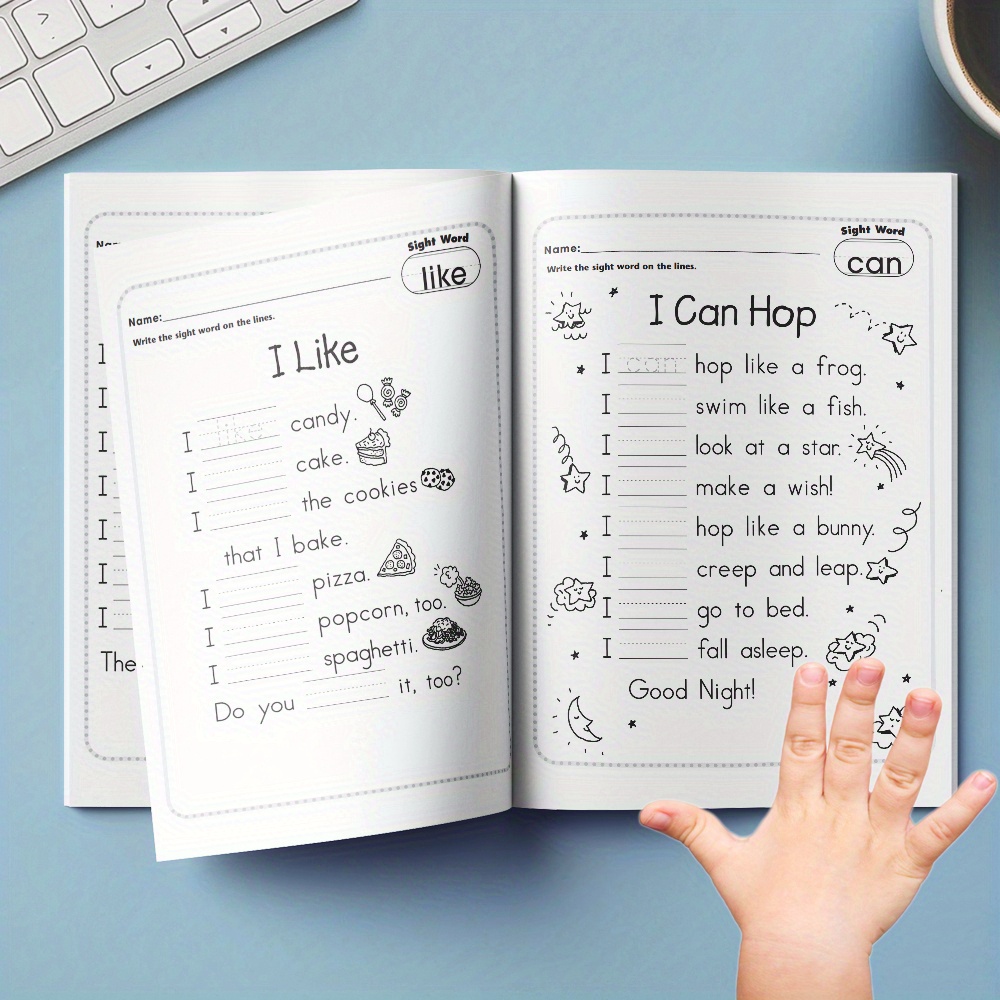 Sight Word
like
Name:
Write the sight word on the lines.
I Like
I like candy.
I cake.
I the cookies
that I bake.
I pizza.
I popcorn, too.
I spaghetti.
Do you it, too?
I
I
I
I
I
I
I
The
Sight Word
can
Name:
Write the sight word on the lines.
I Can Hop
I can hop like a frog.
I swim like a fish.
I look at a star.
I make a wish!
I hop like a bunny.
I creep and leap.
I go to bed.
I fall asleep.
Good Night!